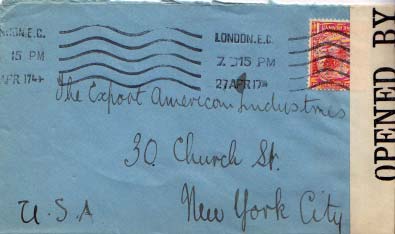 LONDON.E.C. LONDON.E.C.
15 PM 7. 15 PM
APR 17 27 APR 17
The Export American Industries
30 Church St.
New York City
U.S.A
OPENED BY